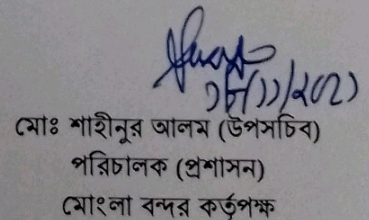 মোঃ শাহীনুর আলম (উপসচিব)
পরিচালক (প্রশাসন)
মোংলা বন্দর কর্তৃপক্ষ